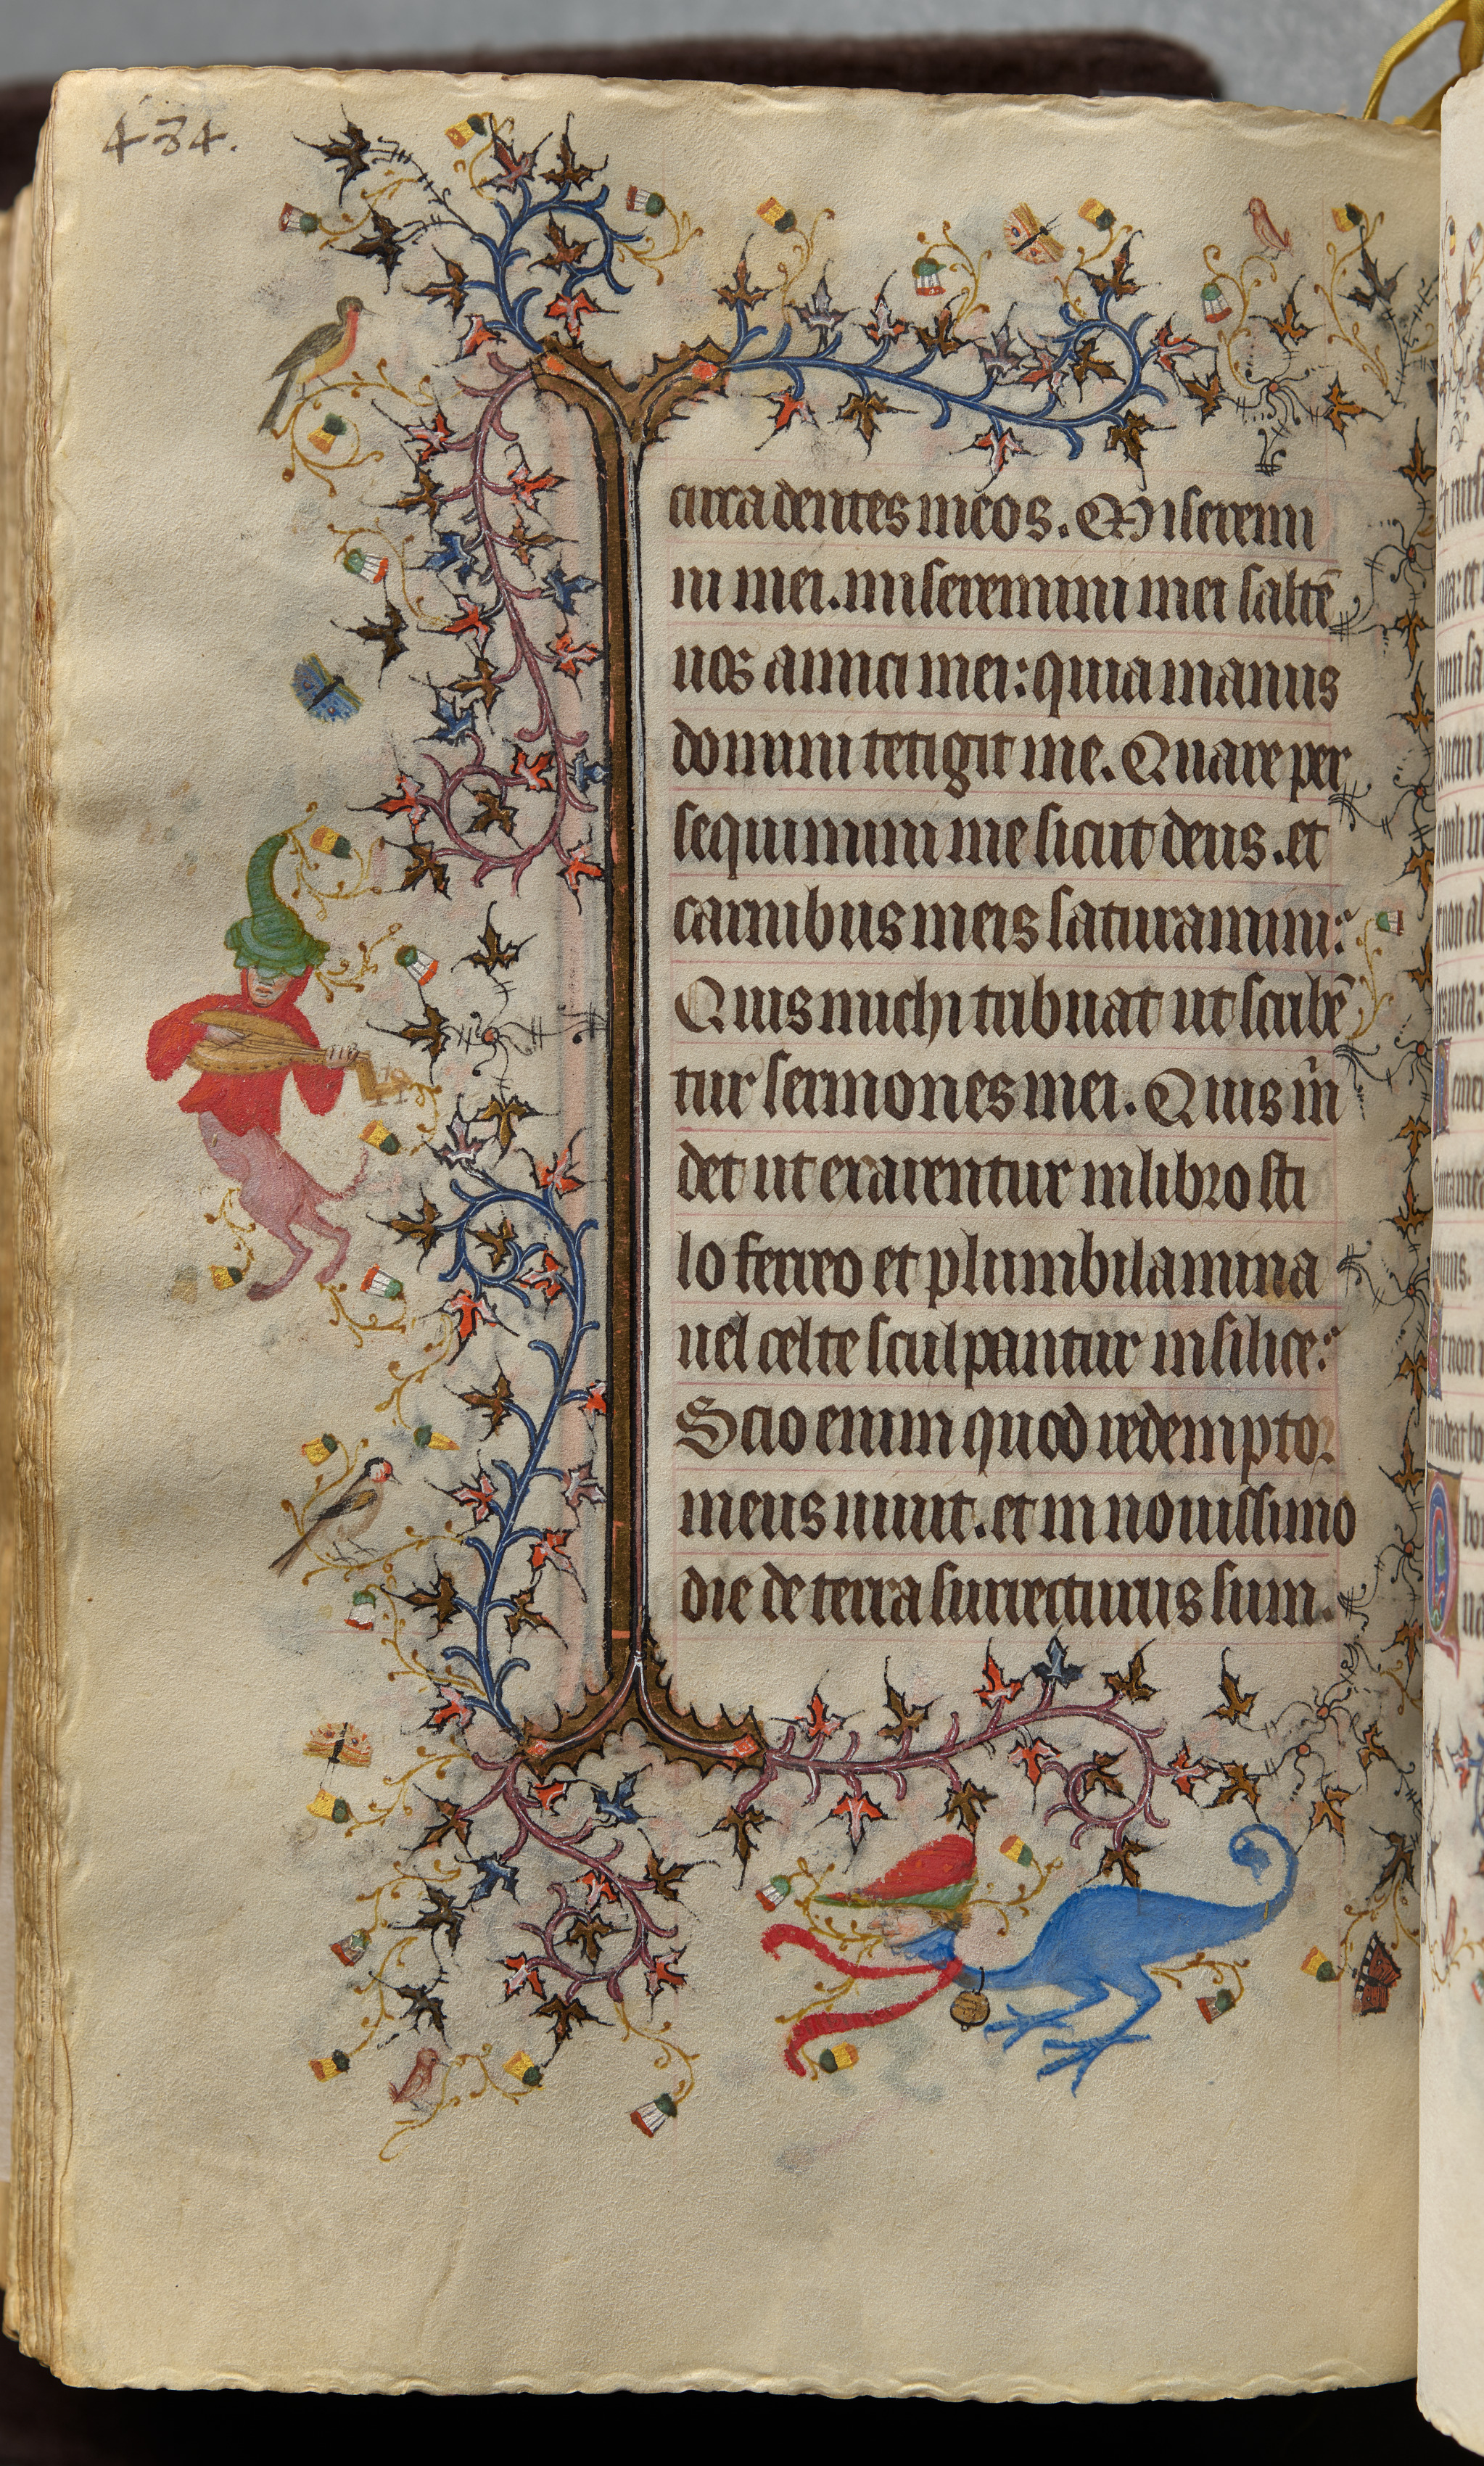 434.
circa dentes meos. Miseremi
ni mei. miseremini mei saltē
uos amici mei: quia manus
domini tetigit me. Quare per
sequimini me sicut deus. et
carnibus meis saturamini:
Quis michi tribuat ut scribē
tur sermones mei. Quis m̄
det ut exarentur in libro sti
lo ferreo et plumbi lamina
uel celte sculpantur in silice:
Scio enim quod redemptor
meus uiuit. et in nouissimo
die de terra surrecturus sum.